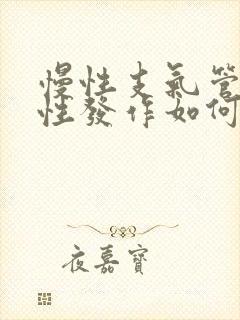 慢性支氣管
性發作如何
夜嘉寶